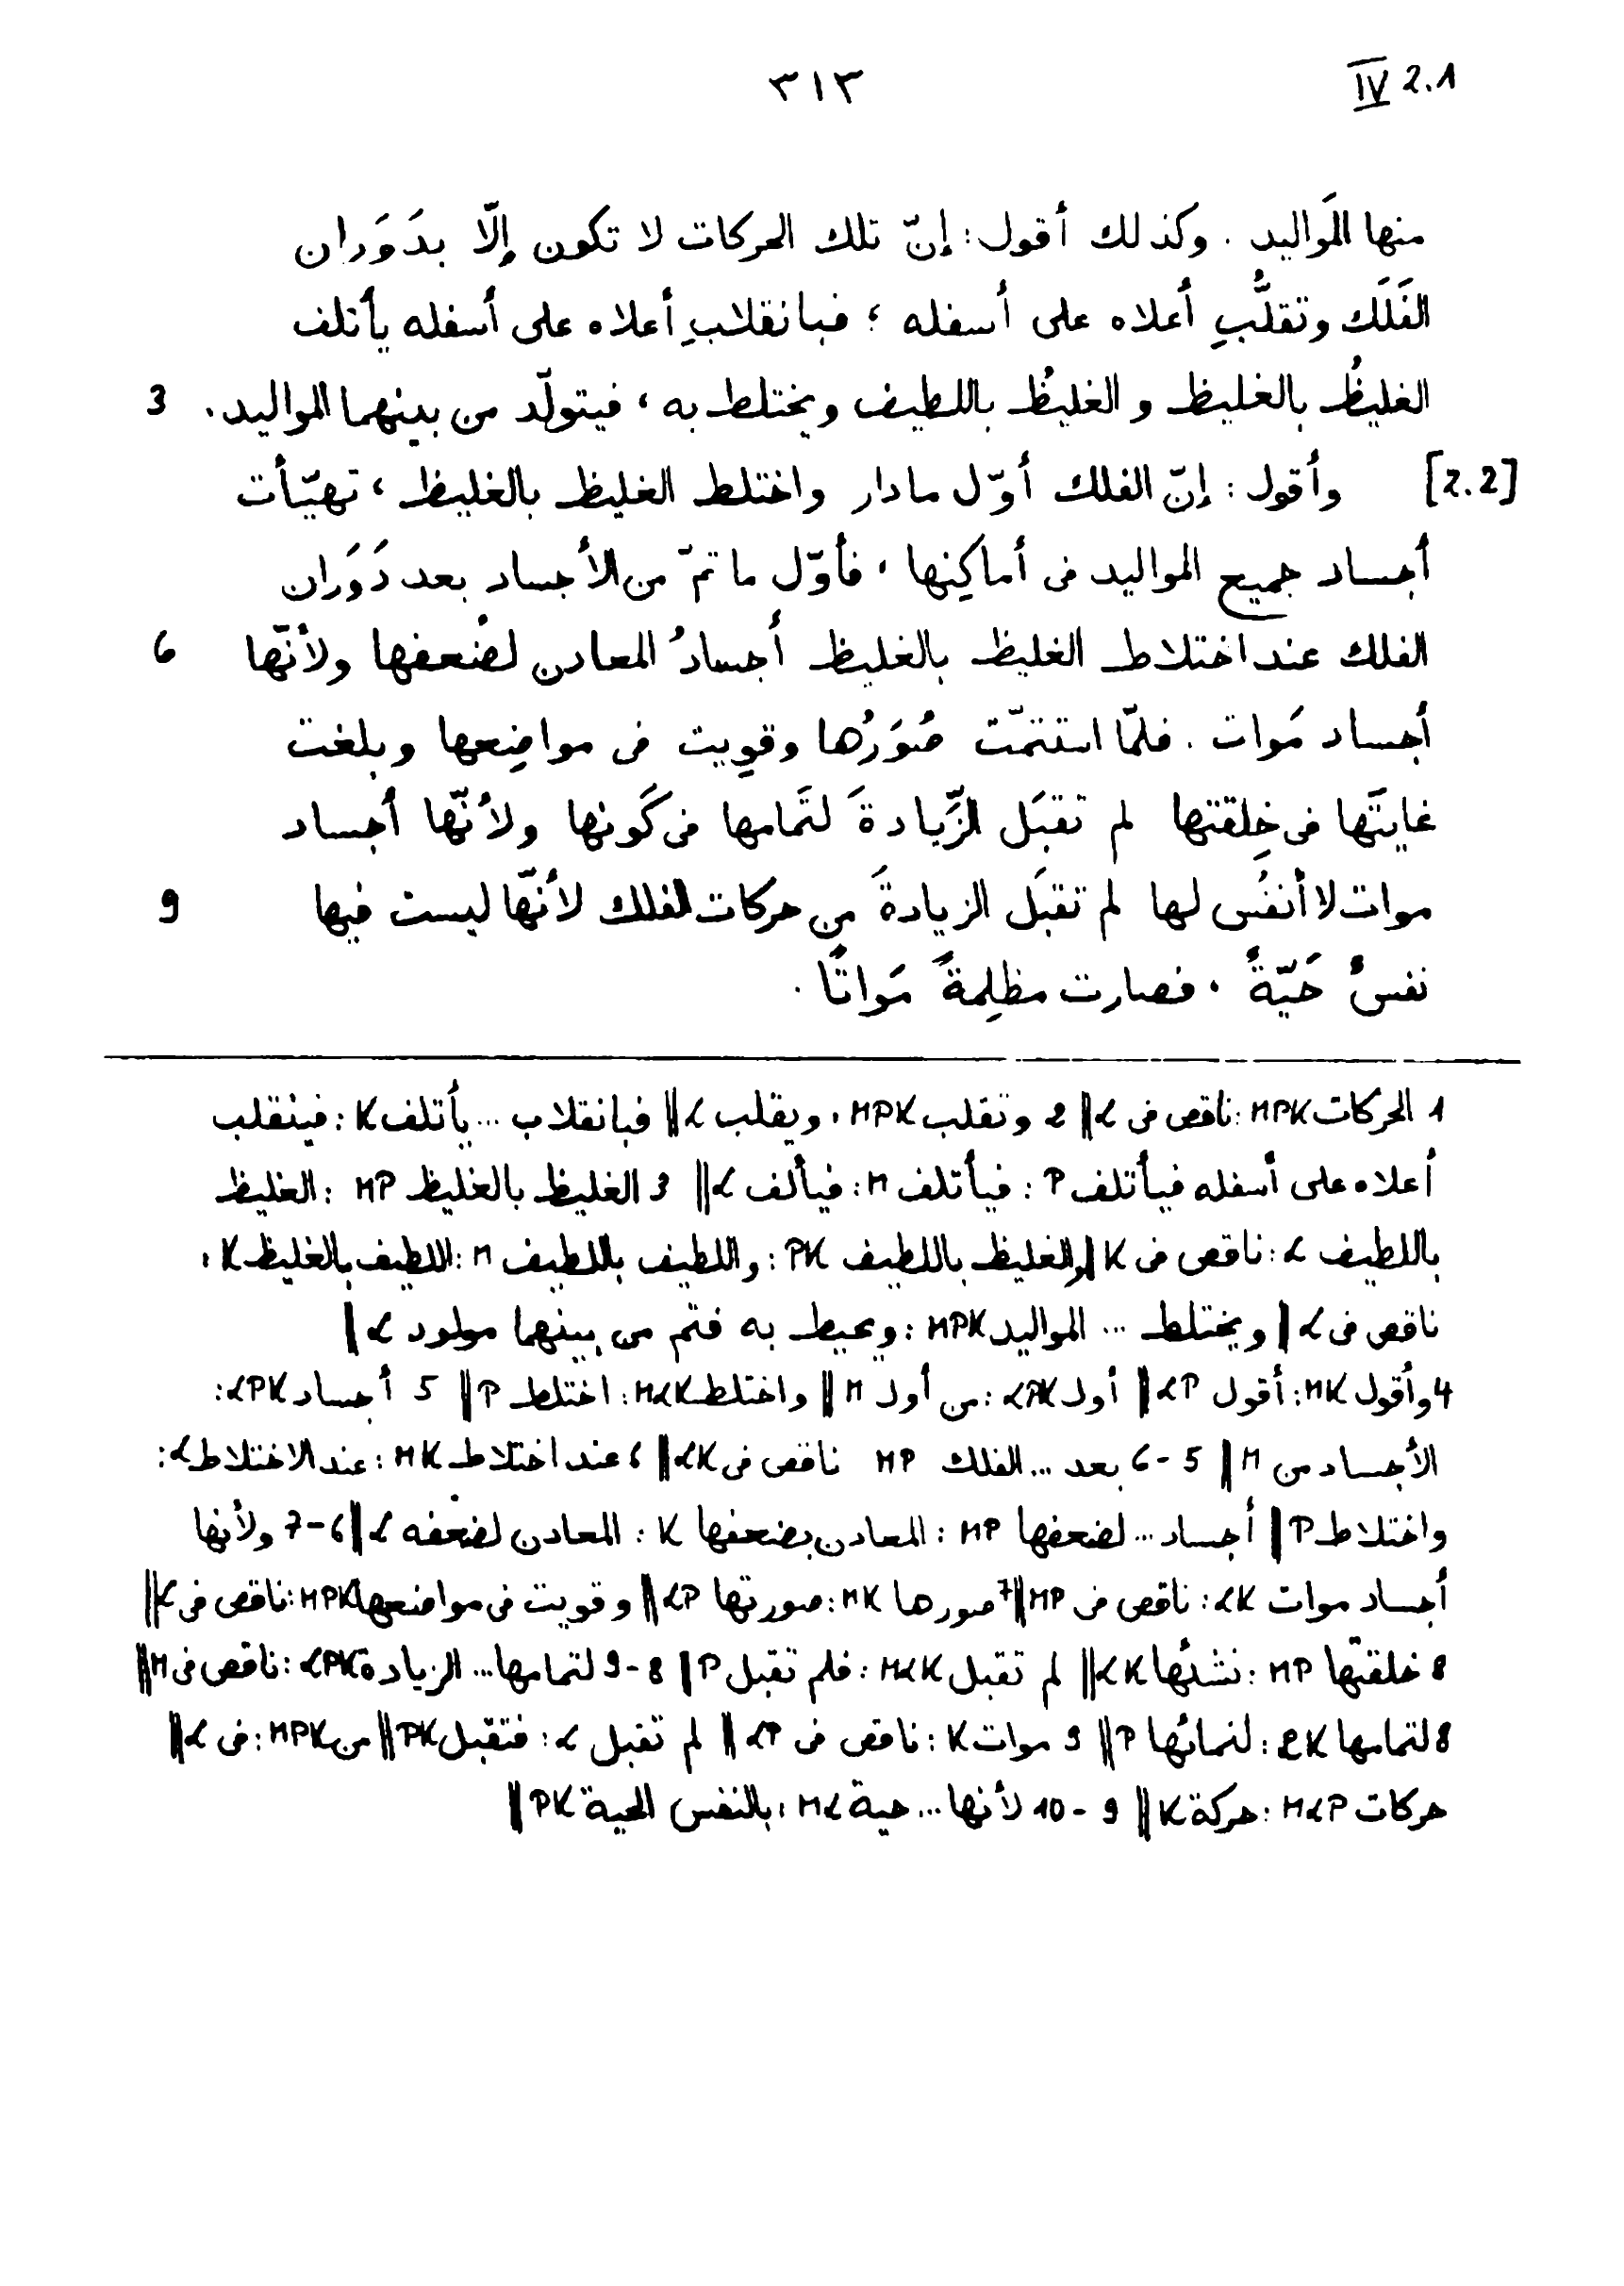 ٣١٣ IV 2.1
منها المَواليد. وكذلك أقول: إنّ تلك الحركات لا تكون إلّا بدَوَران
الفَلَك وتقلُّبِ أعلاه على أسفله؛ فبانقلابِ أعلاه على أسفله يأتلف
الغليظُ بالغليظ والغليظُ باللطيف ويختلط به، فيتولّد من بينهما المواليد. 3
[2.2] وأقول: إنّ الفلك أوّل مادار واختلط الغليظ بالغليظ، تهيّأت
أجساد جميع المواليد فى أماكِنها. فأوّل ما تمّ من الأجساد بعد دَوَران
الفلك عند اختلاط الغليظ بالغليظ أجسادُ المعادن لضُعفها ولأنّها 6
أجساد مَوات. فلمّا استتمّت صُوَرُها وقوِيت فى مواضِعها وبلغت
غايتَها فى خِلقتها لم تقبَل الزِّيادةَ لتَمامها فى كَونها ولأنّها أجساد
موات لا أنفُس لها لم تقبَل الزيادةَ من حركات الفلك لأنّها ليست فيها 9
نفسٌ حَيّةٌ. فصارت مظلِمةً مَواتًا.
1 الحركات MPK: ناقص فى L || 2 وتقلب MPK، ويقلب L || فبانقلاب ... يأتلف K: فينقلب
أعلاه على أسفله فيأتلف P: فيأتلف M: فيألف L || 3 الغليظ بالغليظ MP: الغليظ
باللطيف L: ناقص فى K || والغليظ باللطيف PK: واللطيف باللطيف M: اللطيف بالغليظ K،
ناقص فى L || ويختلط ... المواليد MPK: ويحيط به فتم من بينهما مولود L ||
4 وأقول MK: أقول LP || أول LPK: من أول M || واختلط MLK: اختلط P || 5 أجساد LPK:
الأجساد من M || 5-6 بعد ... الفلك MP ناقص فى LK || 6 عند اختلاط MK: عند الاختلاط L:
واختلاط P || أجساد ... لضعفها MP: المعادن بضعفها K: المعادن لضعفه L || 6-7 ولأنها
أجساد موات LK: ناقص فى MP || 7 صورها MK: صورتها LP || وقويت فى مواضعها MPK: ناقص فى L ||
8 خلقتها MP: نشئها LK || لم تقبل MLK: فلم تقبل P || 8-9 لتمامها ... الزيادة LPK: ناقص فى M ||
8 لتمامها LK: لنمائها P || 9 موات K: ناقص فى LP || لم تقبل L: فتقبل PK || من MPK: فى L ||
حركات MLP: حركة K || 9-10 لأنها ... حية ML: بالنفس الحية PK ||